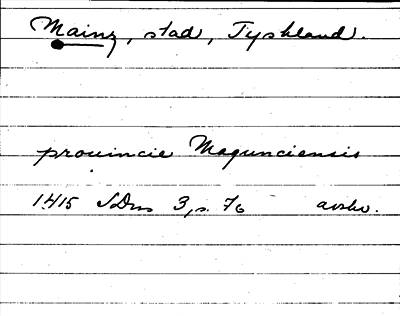 Mainz, stad, Tyskland.
prouincie Magunciensis
1415 SDns 3, s. 76 avskr.